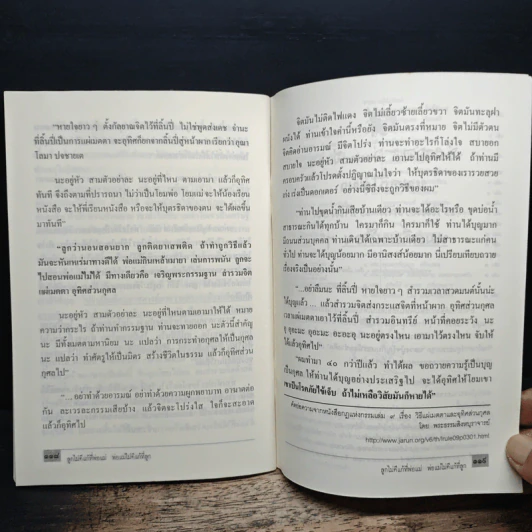 "หายใจยาว ๆ ตั้งกัลยาณจิตไว้ที่ลิ้นปี่ ไม่ใช่พูดส่งเดช จำนะ
ที่ลิ้นปี่เป็นการแผ่เมตตา จะอุทิศก็ยกจากลิ้นปี่สู่หน้าผาก เรียกว่า อุณา
โลมา ปจชายเต
นะอยู่หัว สามตัวอย่าละ นะอยู่ที่ไหน ตามเอามา แล้วก็อุทิศ
ทันที จึงถึงตามที่ปรารถนา ไม่ว่าเป็นโยมพ่อ โยมแม่ จะให้น้องเรียน
หนังสือ จะให้พี่เรียนหนังสือ หรือจะให้บุตรธิดาของตน จะได้ผลขึ้น
มาทันที"
"ลูกว่านอนสอนยาก ลูกติดยาเสพติด ถ้าทำถูกวิธีแล้ว
มันจะหันเหเร่มาทางดีได้ พ่อแม่กินเหล้าเมายา เล่นการพนัน ลูกจะ
ไปสอนพ่อแม่ไม่ได้ มีทางเดียวคือ เจริญพระกรรมฐาน สำรวมจิต
แผ่เมตตา อุทิศส่วนกุศล
นะอยู่หัว สามตัวอย่าละ นะอยู่ที่ไหนตามเอามาให้ได้ หมาย
ความว่ากระไร ถ้าท่านทำกรรมฐาน ท่านจะทายออก นะตัวนี้สำคัญ
นะ มีทั้งเมตตามหานิยม นะ แปลว่า การกระทำอกุศลให้เป็นกุศล
นะ แปลว่า ทำศัตรูให้เป็นมิตร สร้างชีวิตในธรรม แล้วก็อุทิศส่วน
กุศล"
"...อย่าทำด้วยอารมณ์ อย่าทำด้วยความผูกพยาบาท อาฆาตต่อ
กัน ละเวรละกรรมเสียบ้าง แล้วจิตจะโปร่งใส ใจก็จะสะอาด
แล้วก็อุทิศไป
๑๑๘ ลูกไม่ดีแก้ที่พ่อแม่ พ่อแม่ไม่ดีแก้ที่ลูก
จิตมันไม่ติดไฟแดง จิตไม่เลี้ยวซ้ายเลี้ยวขวา จิตมันทะลุฝา
ผนังได้ ท่านเข้าใจคำนี้หรือยัง จิตมันตรงที่หมาย จิตไม่มีตัวตน
จิตคิดอ่านอารมณ์ มีจิตโปร่ง ท่านจะทำอะไรก็โล่งใจ สบายอก
สบายใจ นะอยู่หัว สามตัวอย่าละ เอานะไปอุทิศให้ได้ ถ้าท่านมี
ครอบครัวแล้วโปรดตั้งปฏิญาณในใจว่า ให้บุตรธิดาของเรารวยสวย
เก่ง เร่งเป็นดอกเตอร์ อย่างนี้ซิถึงจะถูกวิธีของผม"
"ท่านไปขุดน้ำกินเสียบ้านเดียว ท่านจะได้อะไรหรือ ขุดบ่อน้ำ
สาธารณะกินได้ทุกบ้าน ใครมาก็กินได้ ใครมาก็ใช้ ท่านได้บุญมาก
มีถนนส่วนบุคคล ท่านเดินได้เฉพาะบ้านเดียว ไม่สาธารณะแก่คน
ทั่วไป ท่านจะได้บุญน้อยมาก มีอานิสงส์น้อยมาก นี่เปรียบเทียบถวาย
เรื่องจริงเป็นอย่างนั้น"
"...อย่าลืมนะ ที่ลิ้นปี่ หายใจยาว ๆ สำรวมเวลาสวดมนต์นั้นน่ะ
ได้บุญแล้ว ... แล้วสำรวมจิตส่งกระแสจิตที่หน้าผาก อุทิศส่วนกุศล
เวลาแผ่เมตตาเอาไว้ที่ลิ้นปี่ สำรวมอินทรีย์ หน้าที่คอยระวัง นะ
อุ อุอะมะ อะอะอุ นะอยู่ตรงไหน เอามาไว้ตรงไหน จับให้
ได้แล้วอุทิศไป"
"ผมทำมา ๔๐ กว่าปีแล้ว ทำได้ผล ขอถวายความรู้เป็นบุญ
เป็นกุศล ให้ท่านได้บุญอย่างประเสริฐไป จะได้อุทิศให้โยมเขา
เขาเป็นโรคภัยไข้เจ็บ ถ้าไม่เหลือวิสัยมันก็หายได้"
คัดย่อความจากหนังสือกฎแห่งกรรมเล่ม ๙ เรื่อง วิธีแผ่เมตตาและอุทิศส่วนกุศล
โดย พระธรรมสิงหบุราจารย์
http://www.jarun.org/v6/th/rule09p0301.html
ลูกไม่ดีแก้ที่พ่อแม่ พ่อแม่ไม่ดีแก้ที่ลูก ๑๑๙